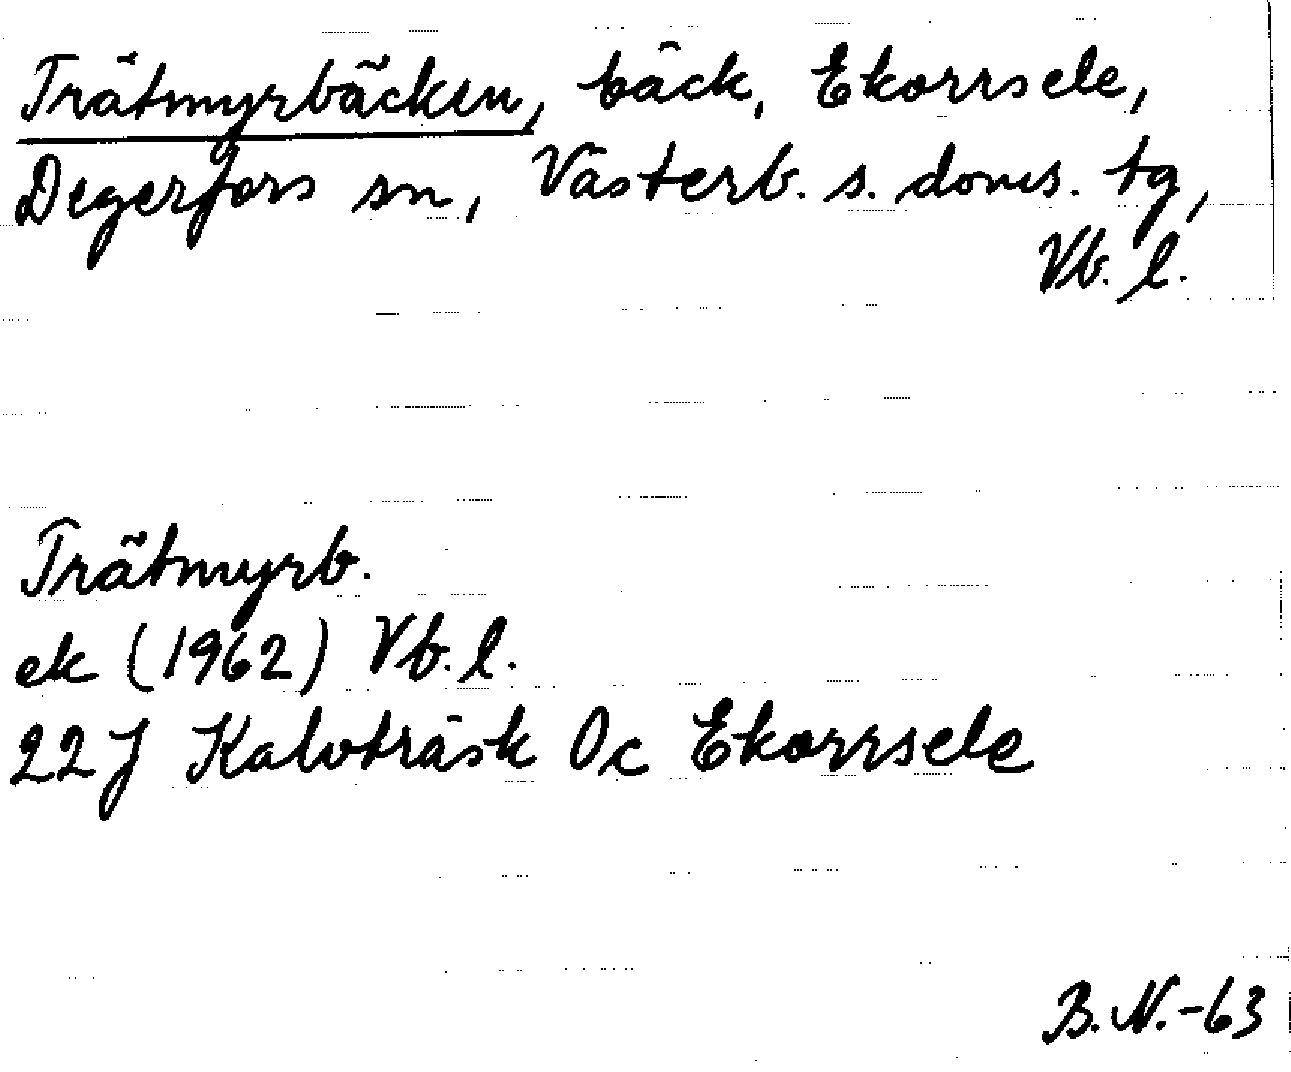 Trätmyrbäcken, bäck, Ekorrsele,
Degerfors sn, Västerb. s. doms. tg,
Vb. l.
Trätmyrb.
ek (1962) Vb. l.
22J Kalvträsk 0c Ekorrsele
B.N.-63